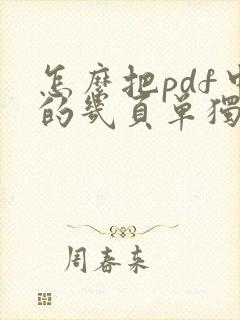 怎麼把pdf中
的幾頁單獨
周春来